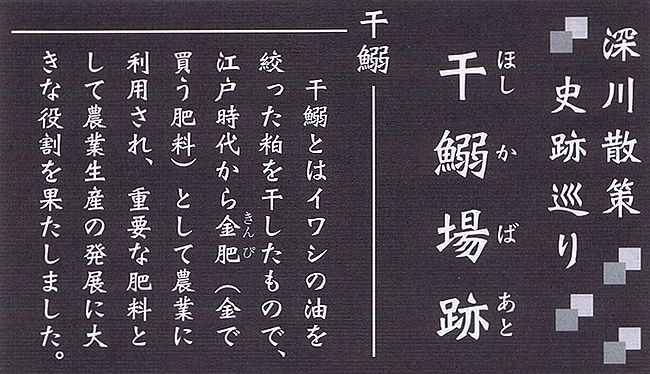 深川散策
史跡巡り
干鰯場跡
ほしかばあと
干鰯
干鰯とはイワシの油を
絞った粕を干したもので、
江戸時代から金肥（金で
きんぴ
買う肥料）として農業に
利用され、重要な肥料と
して農業生産の発展に大
きな役割を果たしました。